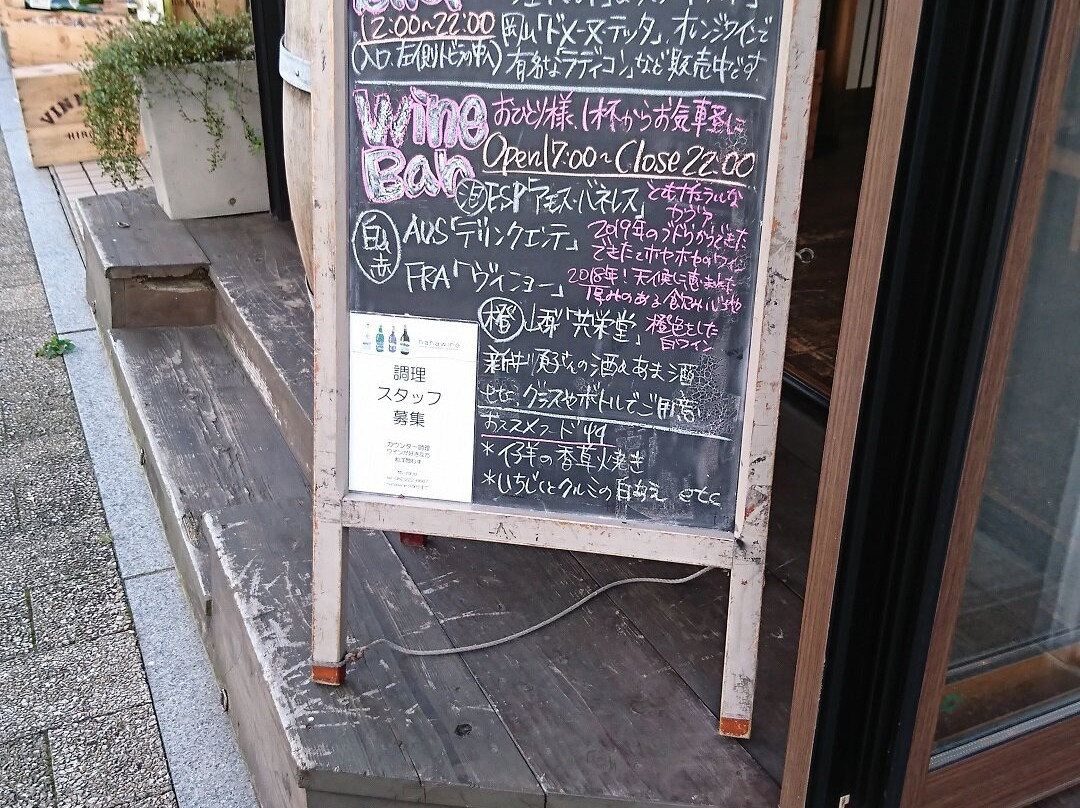 12:00~22:00 岡山「ドメーヌ・テッタ」オレンジワインで
(入口、左側トビラの中へ) 有名な「ラディコン」など販売中です
Wine Bar
おひとり様、1杯からお気軽に
Open 17:00~Close 22:00
泡 ESP
とてもナチュラルな
カヴァ
白&赤
AUS「デリンクエンテ」
2019年のブドウからできた
できたてホヤホヤのワイン
FRA「ヴィニョー」
2018年!天候に恵まれた
厚みのある飲み心地
橙 山梨「共栄堂」
橙色をした
白ワイン
新井順子さんの酒&あま酒
etc. グラスやボトルでご用意
おススメフード
*仔羊の香草焼き
*いちじくとクルミの白あえ etc
hanawine
調理
スタッフ
募集
カウンター調理
ワインが好きな方
和洋問わず
VIN